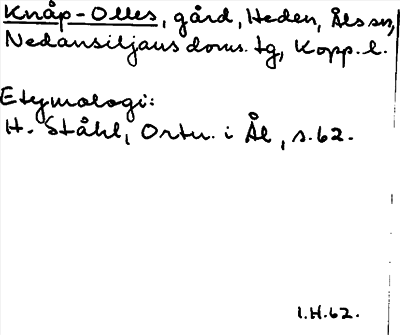 Knåp-Olles, gård, Heden, Åls sn,
Nedansiljans doms. tg, Kopp. l.
Etymologi:
H. Ståhl, Ortn. i Ål, s. 62.
I.H.62.